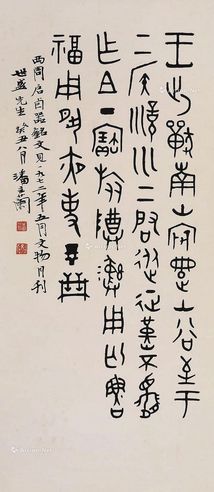 王出獸南山山谷至于
上侯川上啟從征堇不
乍且丁寶旅尊彝用匄魯
福用夙夜事
西周启卣器銘文見一九七二年五月文物月刊
世盛先生 癸丑八月 潘主蘭